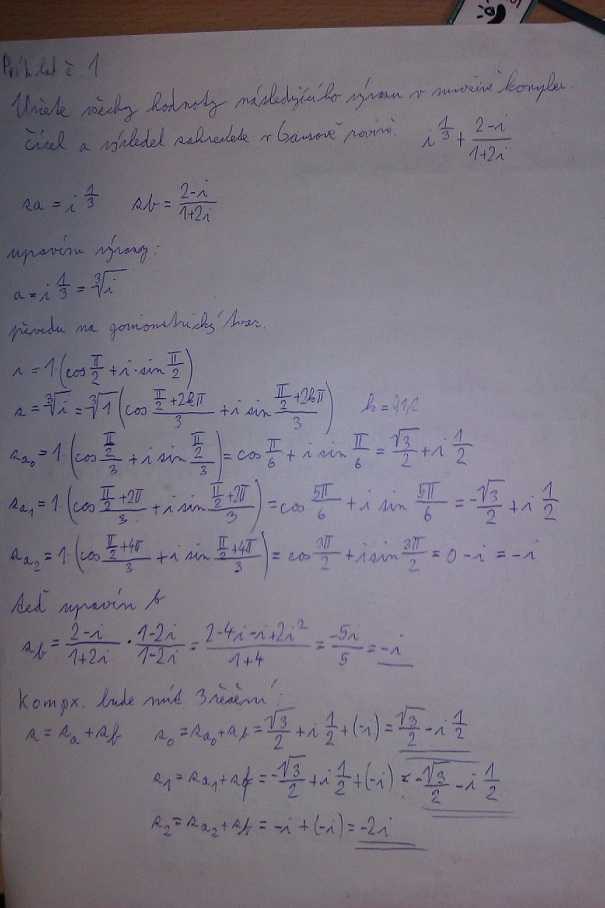 Příklad č. 1
Určete všechny hodnoty následujícího výrazu v množině komplex.
čísel a výsledek zakreslete v Gausově rovině. i^{1/3} + (2-i)/(1+2i)
za = i^{1/3} zb = (2-i)/(1+2i)
upravím výrazy:
a = i^{1/3} = ∛i
převedu na goniometrický tvar.
i = 1(cos π/2 + i·sin π/2)
z = ∛i = ∛1 (cos (π/2+2kπ)/3 + i sin (π/2+2kπ)/3) k = 0,1,2
z_{a0} = 1·(cos (π/2)/3 + i sin (π/2)/3) = cos π/6 + i sin π/6 = √3/2 + i 1/2
z_{a1} = 1·(cos (π/2+2π)/3 + i sin (π/2+2π)/3) = cos 5π/6 + i sin 5π/6 = -√3/2 + i 1/2
z_{a2} = 1·(cos (π/2+4π)/3 + i sin (π/2+4π)/3) = cos 3π/2 + i sin 3π/2 = 0 - i = -i
teď upravím b
z_b = (2-i)/(1+2i) · (1-2i)/(1-2i) = (2-4i-i+2i²)/(1+4) = -5i/5 = -i
Kompx. bude mít 3 řešení:
z = z_a + z_b z_0 = z_{a0} + z_b = √3/2 + i 1/2 + (-i) = √3/2 - i 1/2
z_1 = z_{a1} + z_b = -√3/2 + i 1/2 + (-i) = -√3/2 - i 1/2
z_2 = z_{a2} + z_b = -i + (-i) = -2i